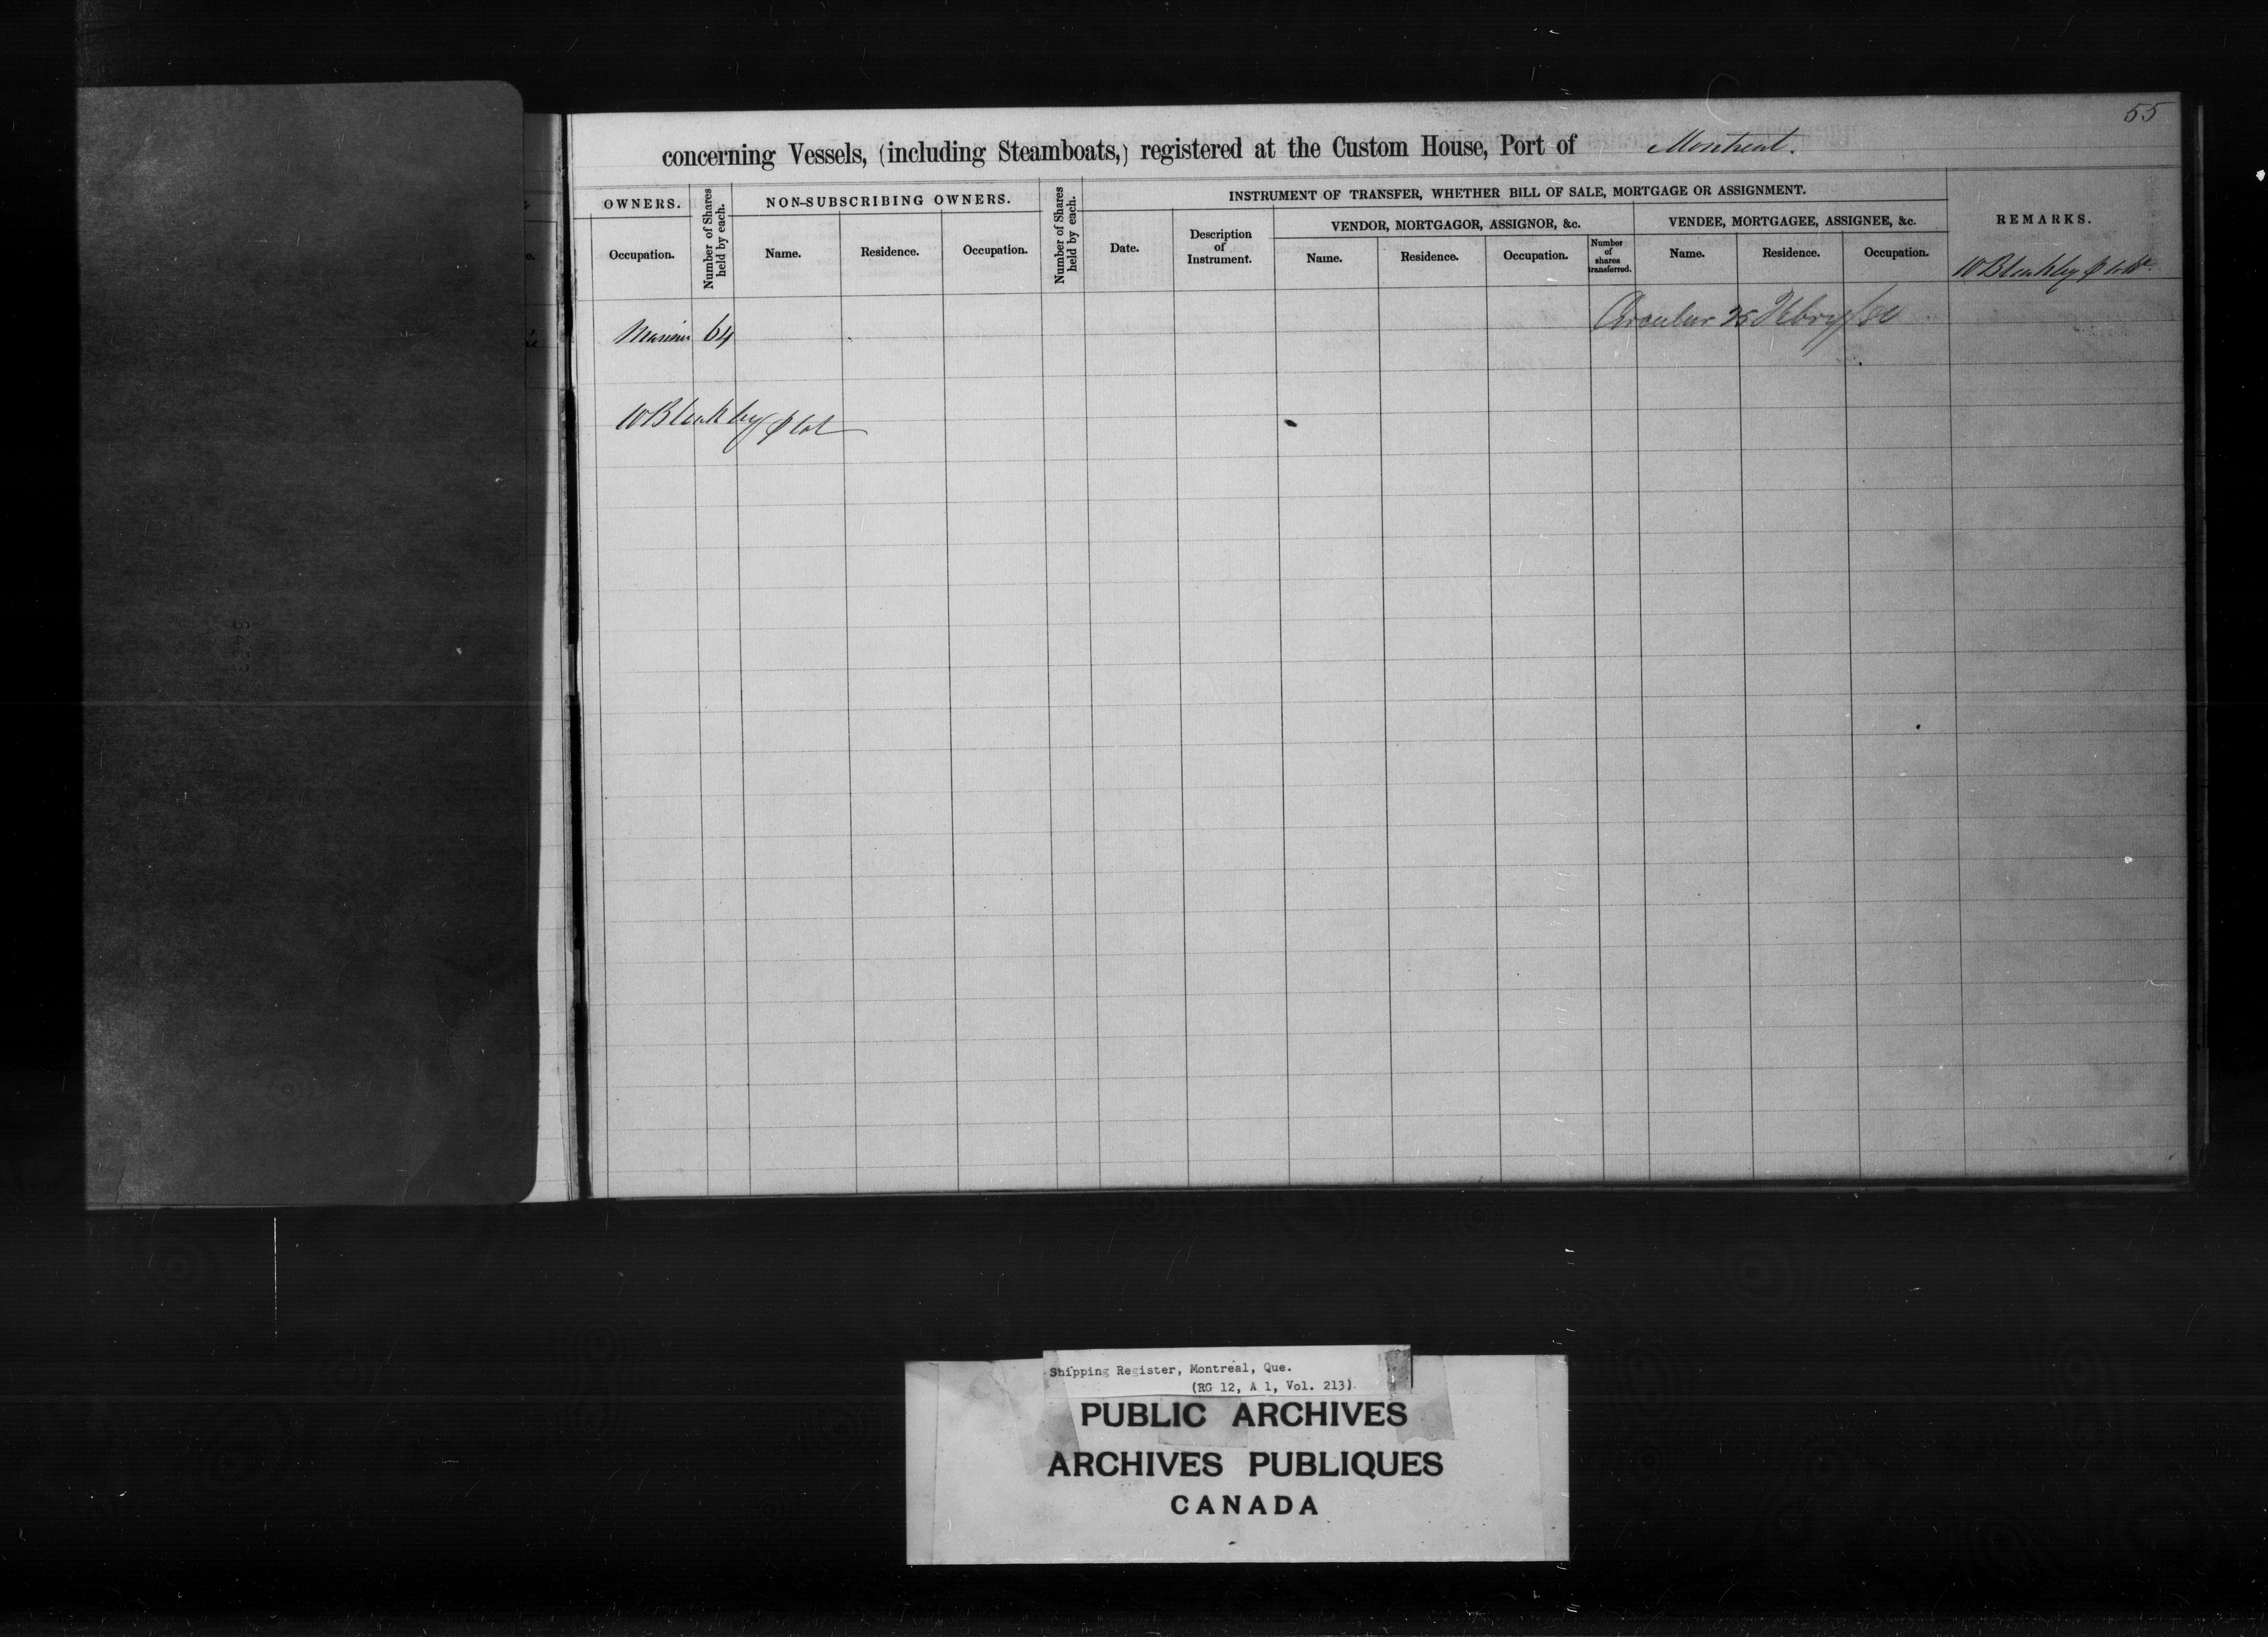 55
concerning Vessels, (including Steamboats,) registered at the Custom House, Port of Montreal.
OWNERS.
Number of Shares held by each.
NON-SUBSCRIBING OWNERS.
Number of Shares held by each.
INSTRUMENT OF TRANSFER, WHETHER BILL OF SALE, MORTGAGE OR ASSIGNMENT.
REMARKS.
VENDOR, MORTGAGOR, ASSIGNOR, &c.
VENDEE, MORTGAGEE, ASSIGNEE, &c.
Occupation.
Name.
Residence.
Occupation.
Date.
Description of Instrument.
Name.
Residence.
Occupation.
Number of shares transferred.
Name.
Residence.
Occupation.
W Bleakley
Mariner 64
Circular 25 Febry/80
W Bleakley
Shipping Register, Montreal, Que.
(RG 12, A 1, Vol. 213)
PUBLIC ARCHIVES
ARCHIVES PUBLIQUES
CANADA